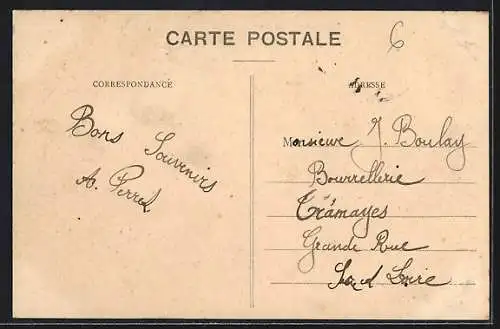 CARTE POSTALE
6
CORRESPONDANCE
ADRESSE
Bons Souvenirs
A. Perret
Monsieur J. Boulay
Bourrellerie
Tramayes
Grande Rue
Loire